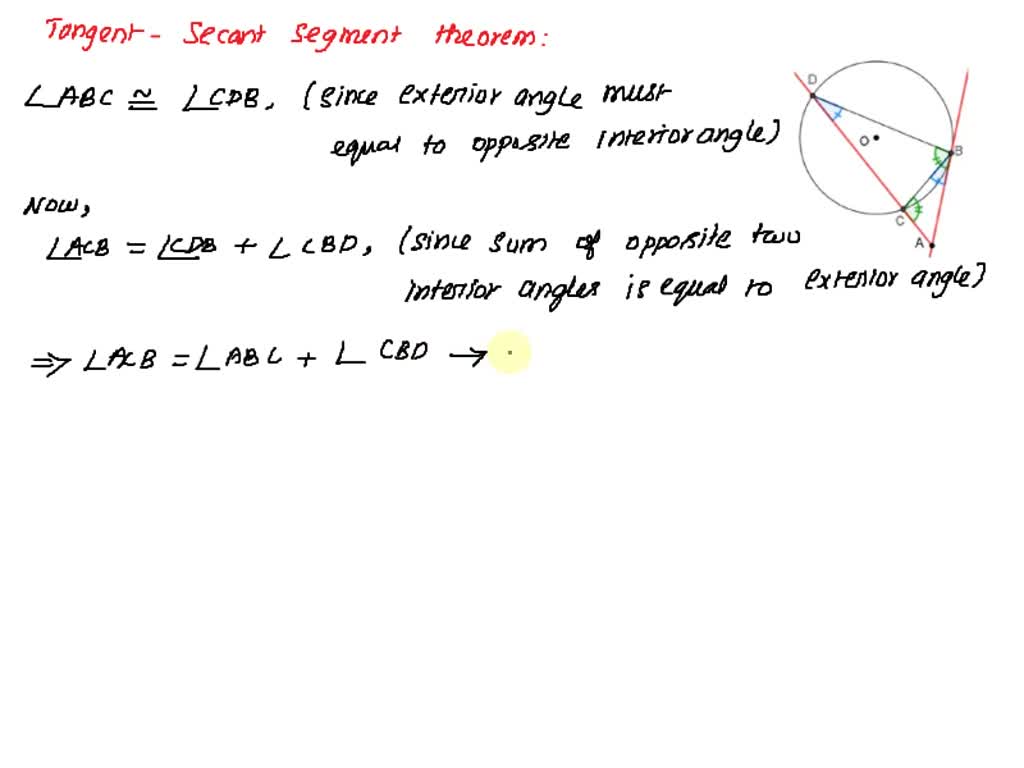 Tangent - Secant Segment theorem:
∠ABC ≅ ∠CDB, (since exterior angle must
equal to opposite interior angle)
Now,
∠ACB = ∠CDB + ∠CBD, (since sum of opposite two
interior angles is equal to exterior angle)
⇒ ∠ACB = ∠ABC + ∠CBD →
D
O
B
C
A